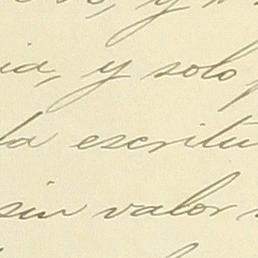 y
ia, y solo
la escritu
sin valor